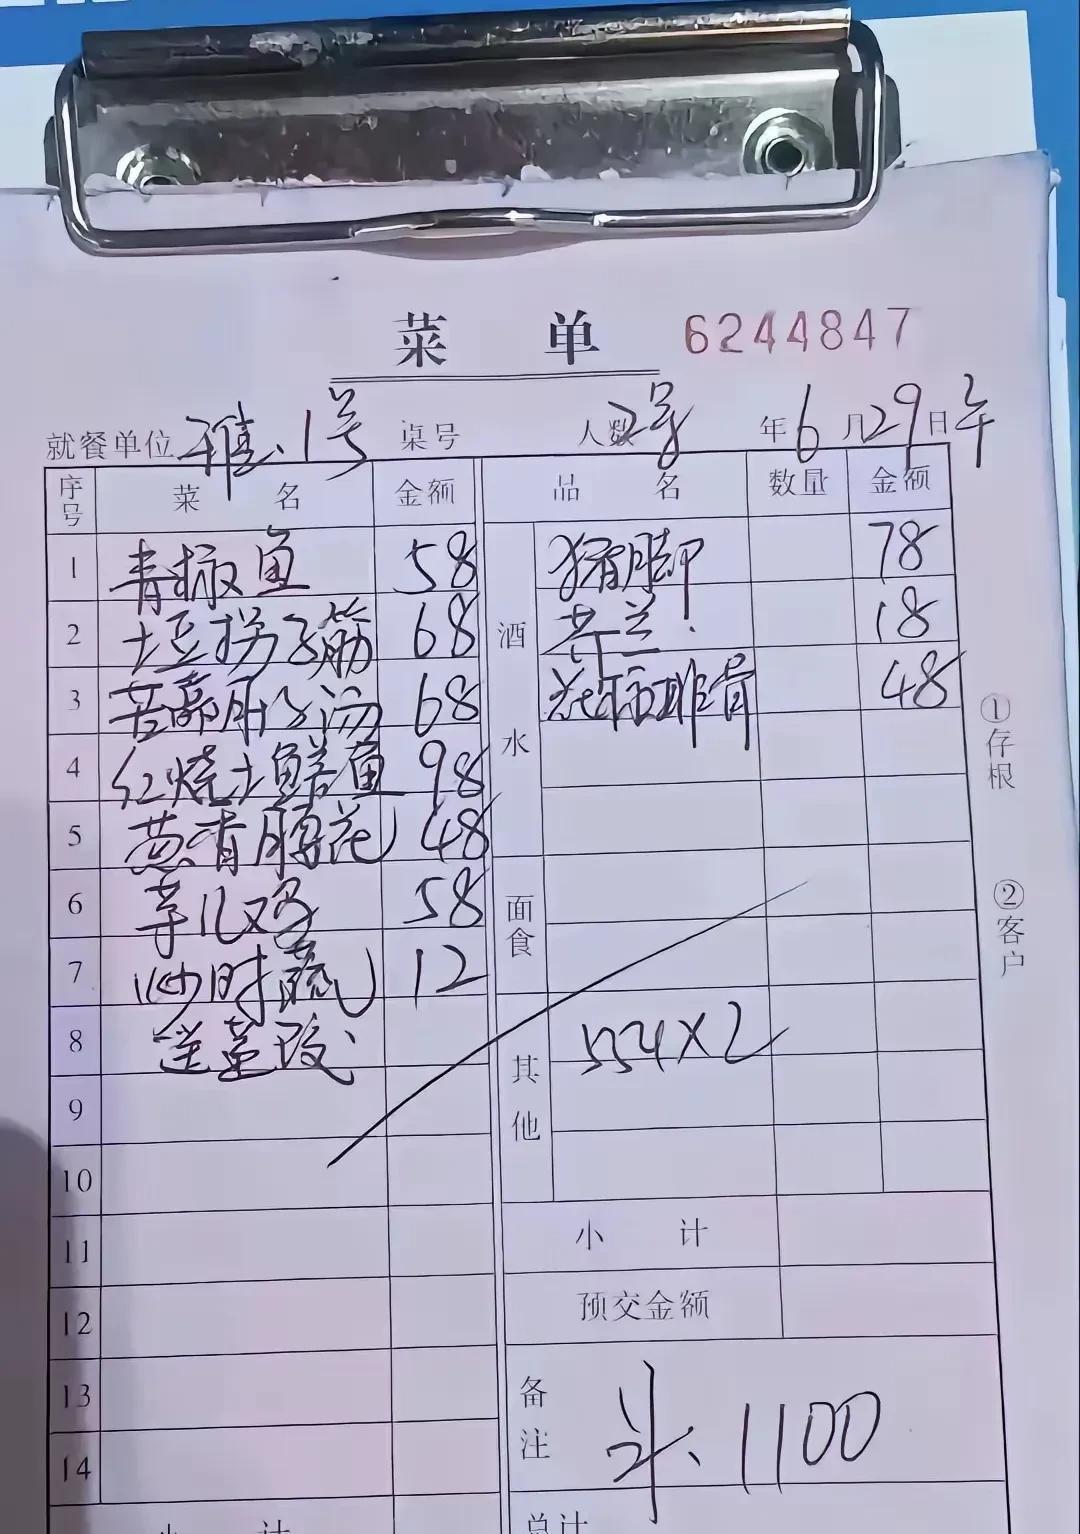 菜 单 6244847
就餐单位 雅、1号 桌号 人数 2号 年 6 月 29 日 午
序号 菜 名 金额 品 名 数量 金额
1 青椒鱼 58
2 土豆拐子筋 68
3 苦藠肚子汤 68
4 红烧土鳝鱼 98
5 葱香腰花 48
6 芋儿鸡 58
7 炒时蔬 12
8
9
10
11
12
13
14
小 计
酒水
猪脚 78
芥兰 18
花椒排骨 48
面食
其他
554×2
小 计
预交金额
备注 斗、1100
总计
①存根
②客户